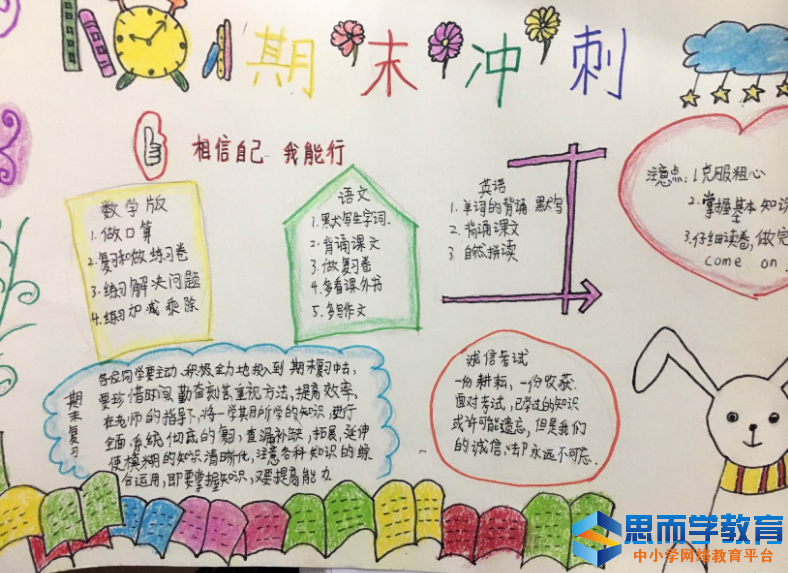 期末冲刺
相信自己 我能行
数学版
1. 做口算
2. 复习和做练习卷
3. 练习解决问题
4. 练习加减乘除
语文
1. 默写生字词.
2. 背诵课文
3. 做复习卷
4. 多看课外书
5. 多写作文
英语
1. 单词的背诵 默写
2. 背诵课文
3 自然拼读
注意点: 1克服粗心
2. 掌握基本知识
3. 仔细读卷, 做完
come on
期末复习
各位同学要主动、积极、全力地投入到期末复习中去,
要珍惜时间, 勤奋刻苦, 重视方法, 提高效率,
在老师的指导下, 将一学期所学的知识, 进行
全面 系统 彻底的复习, 查漏补缺, 拓展, 延伸
使模糊的知识清晰化, 注意各种知识的综
合运用, 即要掌握知识, 又要提高能力
诚信考试
一份耕耘, 一份收获.
面对考试, 已学过的知识
或许可能遗忘, 但是我们
的诚信, 却永远不可忘.
思而学教育
中小学网络教育平台